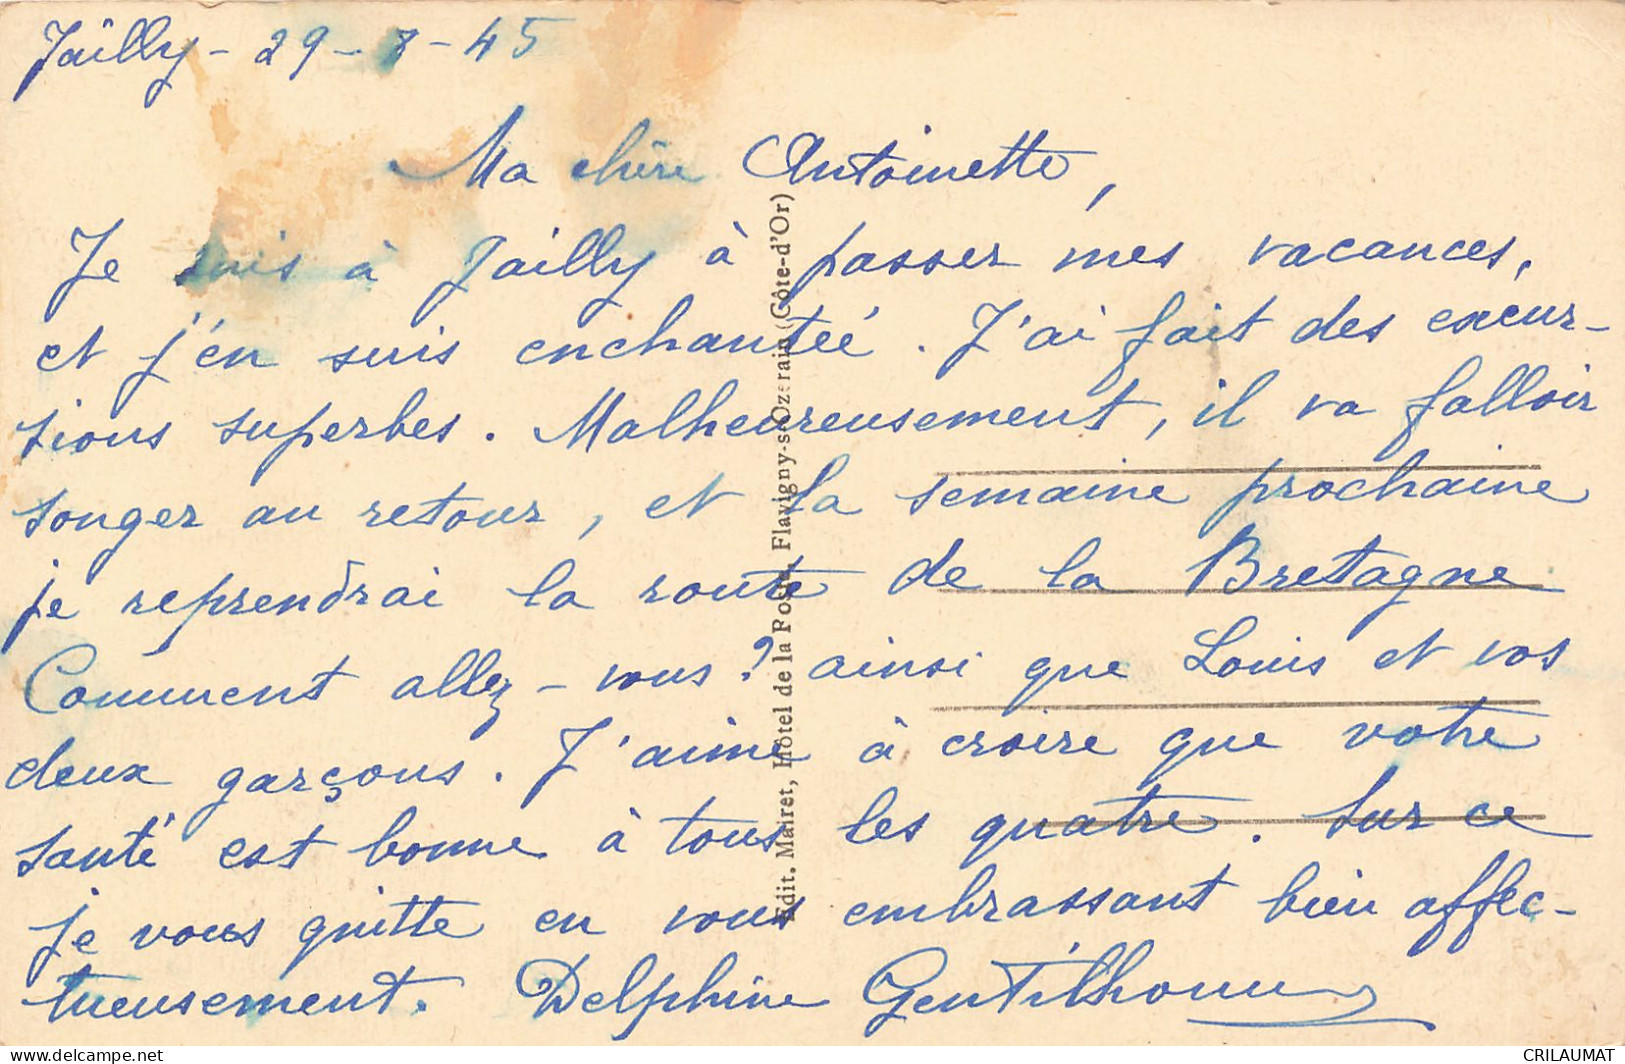 Jailly - 29 - 8 - 45
Ma chère Antoinette,
Je suis à Jailly à passer mes vacances,
et j'en suis enchantée. J'ai fait des excur-
sions superbes. Malheureusement, il va falloir
songer au retour, et la semaine prochaine
je reprendrai la route de la Bretagne
Comment allez-vous ? ainsi que Louis et vos
deux garçons. J'aime à croire que votre
santé est bonne à tous les quatre. Sur ce
je vous quitte en vous embrassant bien affec-
tueusement. Delphine Gentilhomme
Edit. Mairet, Hôtel de la Poste, Flavigny-s-Ozerain (Côte-d'Or)
delcampe.net
CRILAUMAT